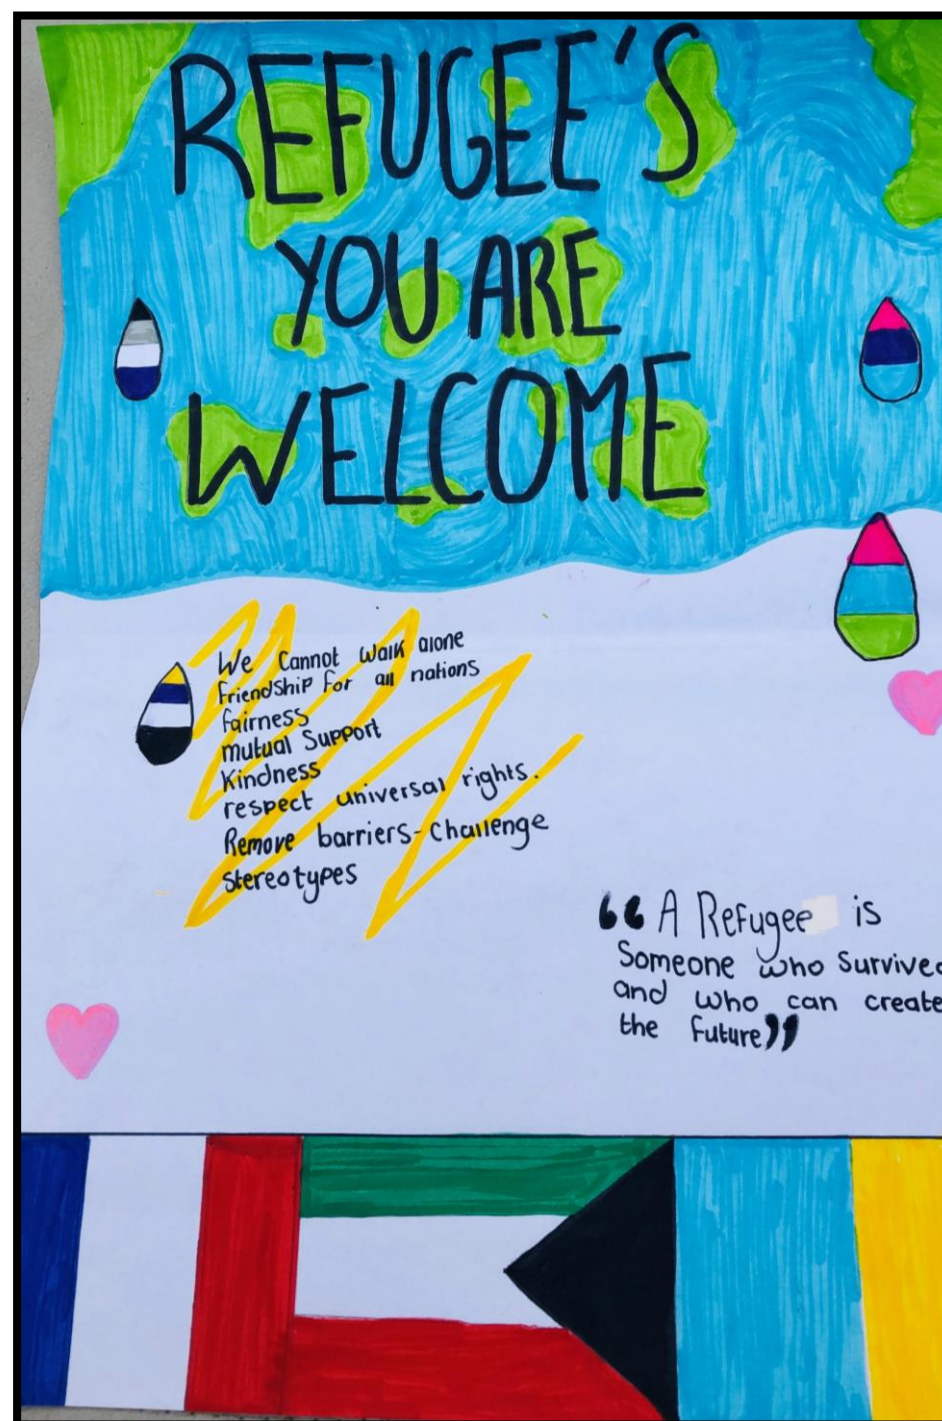 REFUGEE'S
YOU ARE
WELCOME
We Cannot Walk alone
Friendship for all nations
fairness
mutual Support
Kindness
respect universal rights.
Remove barriers-Challenge
Stereotypes
“A Refugee is
Someone who Survived
and who can create
the Future”